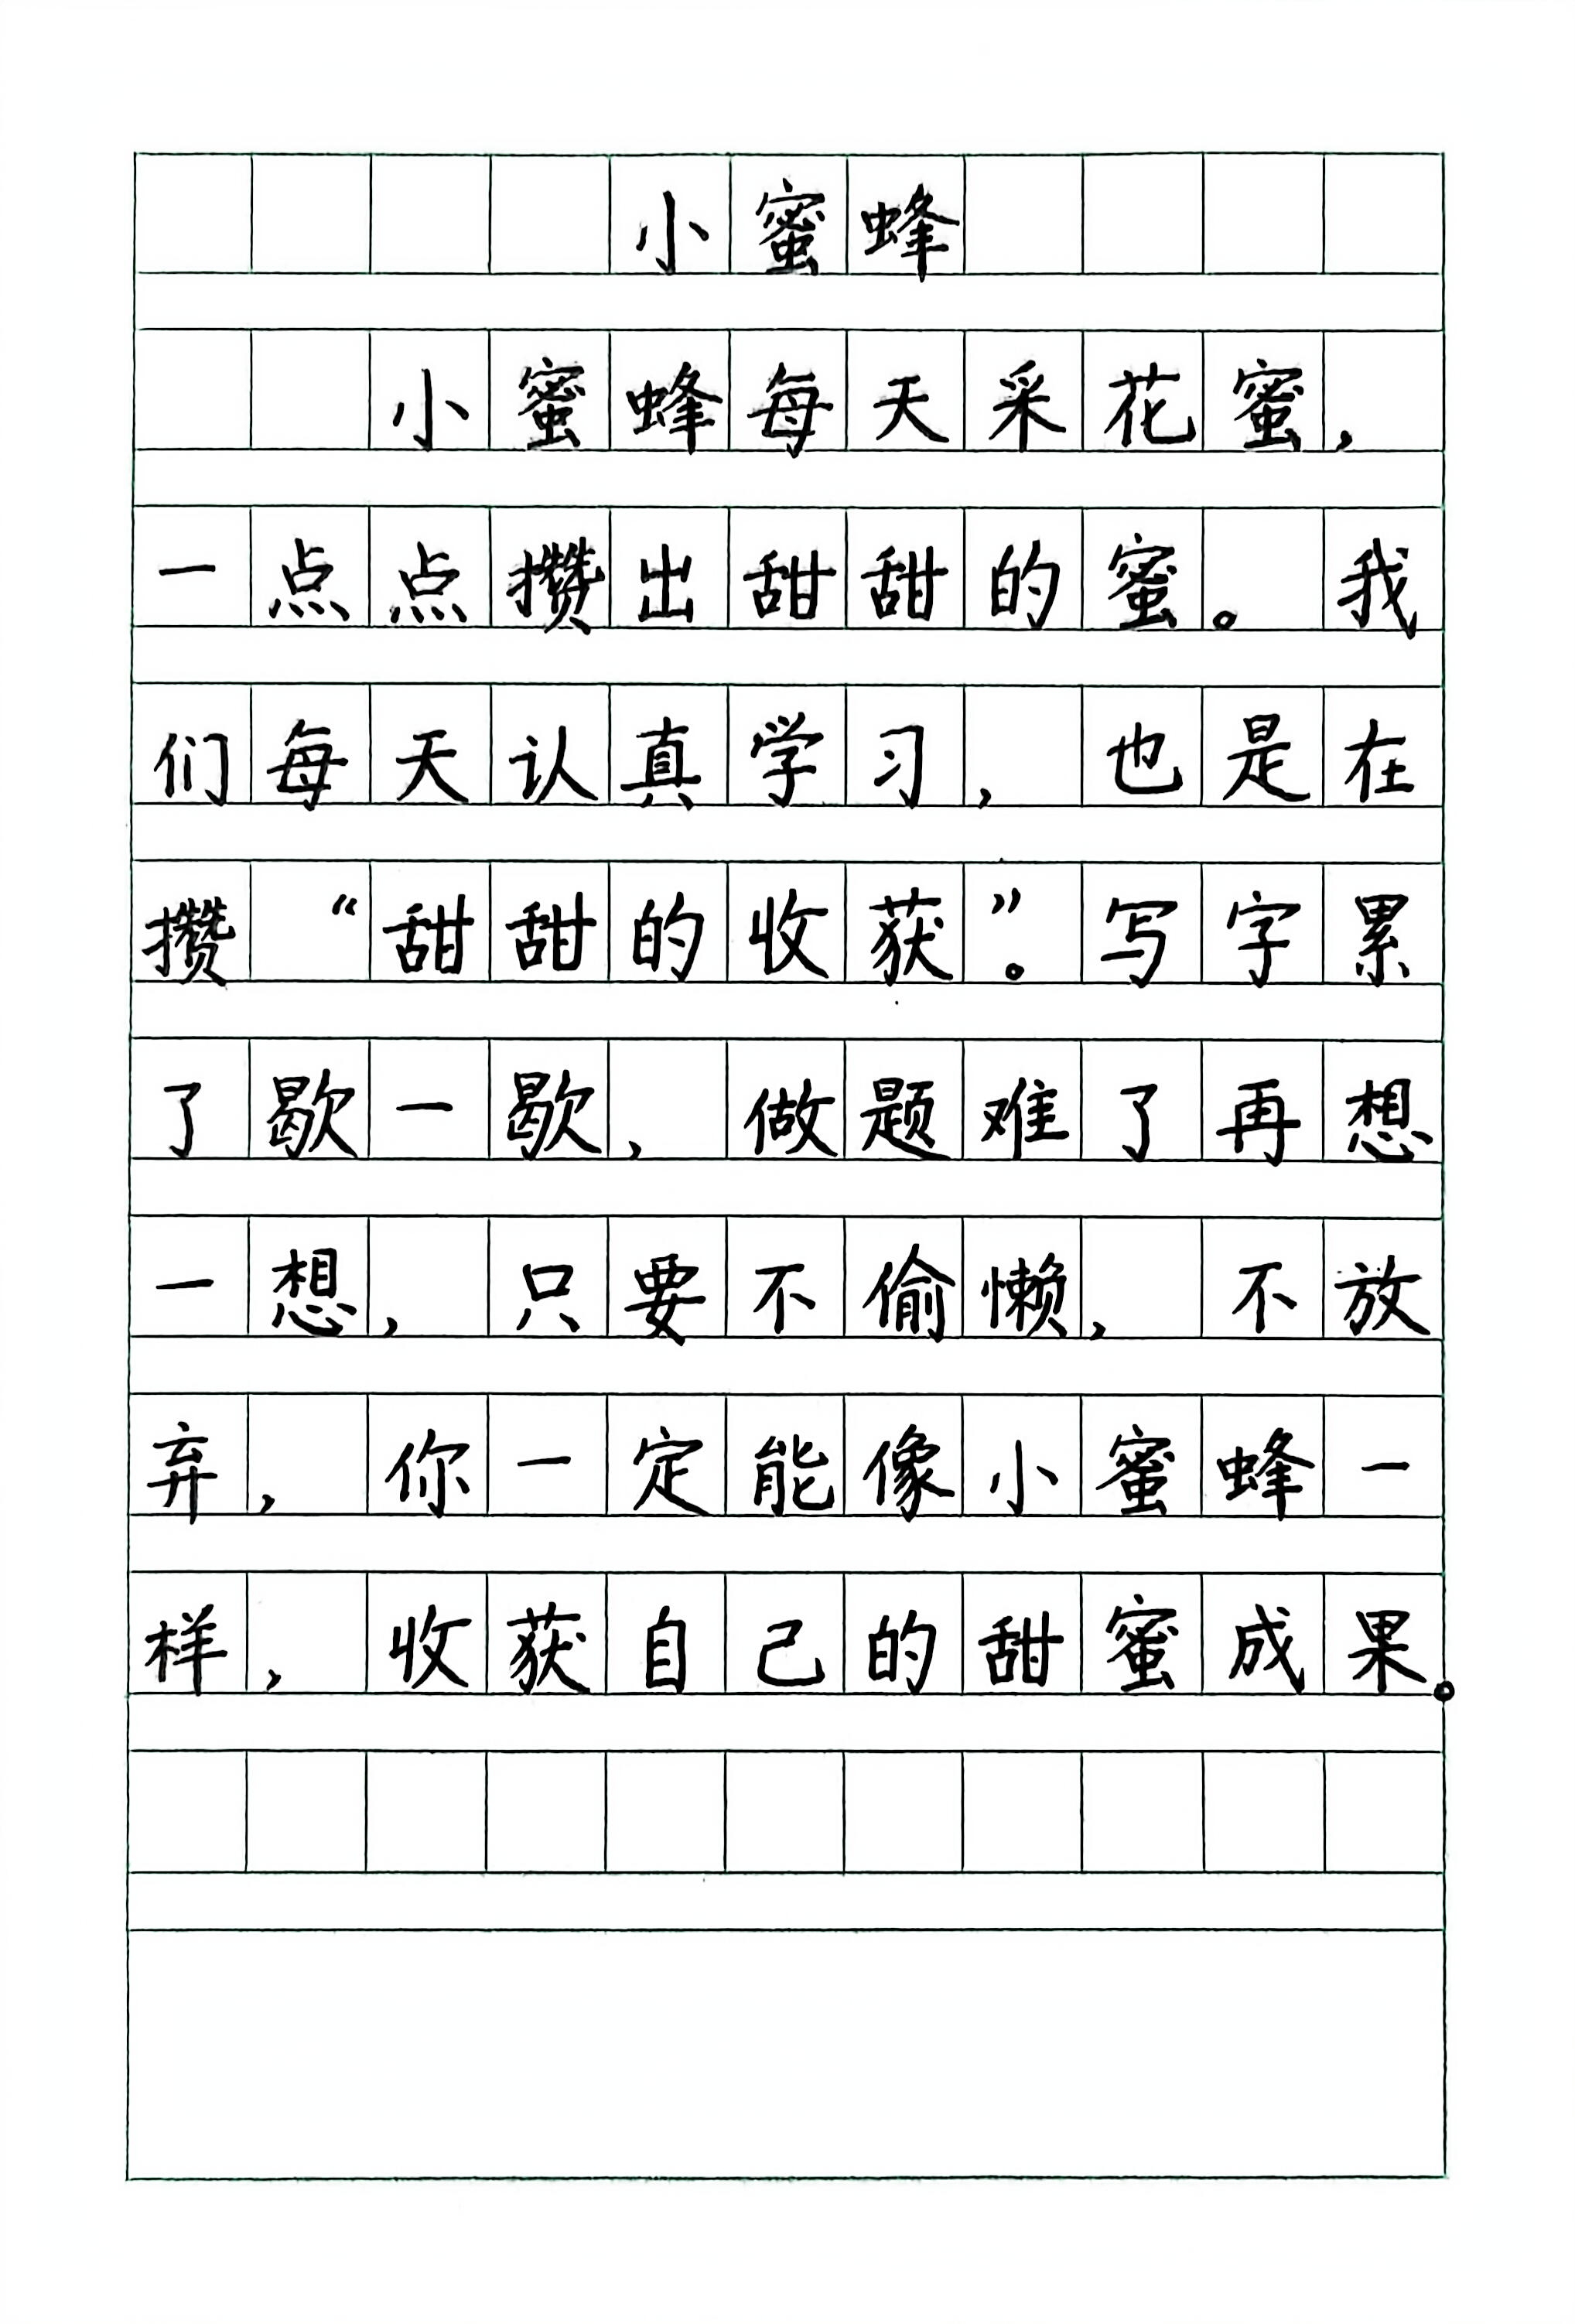 小蜜蜂
小蜜蜂每天采花蜜，
一点点攒出甜甜的蜜。我
们每天认真学习，也是在
攒“甜甜的收获”。写字累
了歇一歇，做题难了再想
一想，只要不偷懒，不放
弃，你一定能像小蜜蜂一
样，收获自己的甜蜜成果。